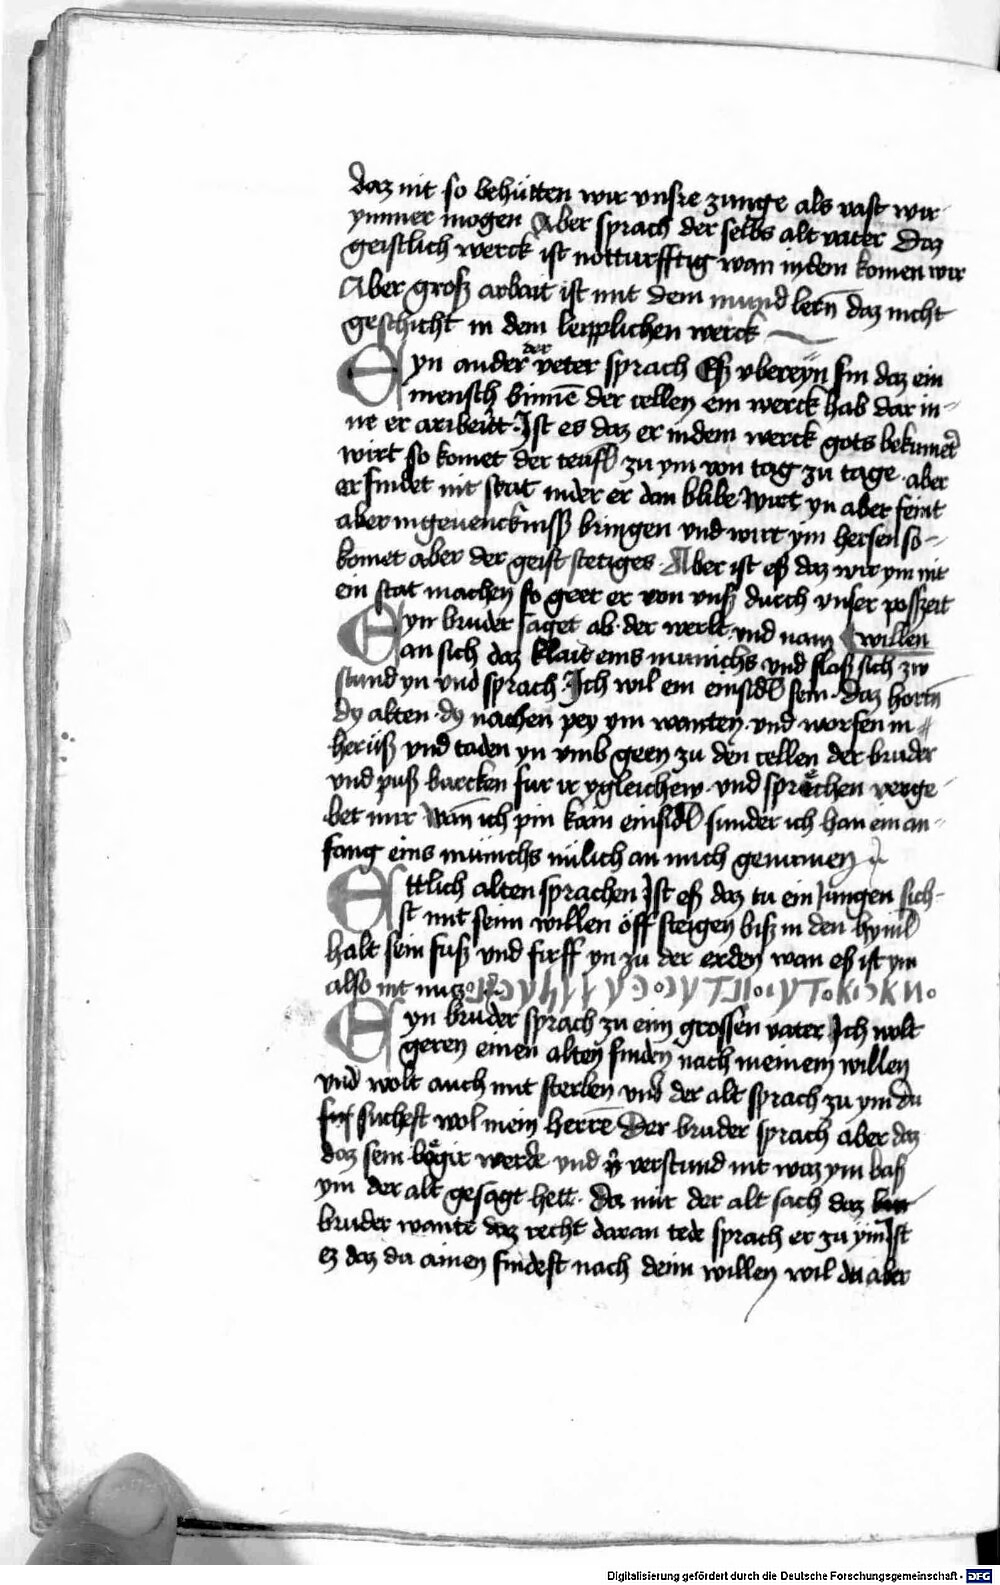 daz nit so behütten wir vnsre zunge als vast wir
ymmer mogen Aber sprach der selbs alt vater Daz
geistlich werck ist notturfftig wan indem komen wir
Aber groß arbait ist mit dem mund lern̄ daz nicht
geschicht in dem leipplichen werck
Eyn ander der veter sprach Eß vbereyn sin daz ein
mensch binnē der cellen ein werck hab dar in-
ne er aribeitt. Ist es daz er indem werck gots bekumet
wirt so komet der teufl zu ym von tag zu tage aber
er findet nit stat inder er dan blibe Wirt yn aber feint
aber ingevencknuß bringen vnd wirt ym hersen so-
komet aber der geist stetiges. Aber ist eß daz wir ym nit
ein stat machen so geet er von vnß durch vnser poßzeit
Eyn bruder saget ab der werlt vnd nam willen
an sich daz klait eins munichs vnd sloß sich zw
stund yn vnd sprach. Ich wil ein einsidl sein. Daz hortn
dy alten dy nachen pey ym wanten vnd worfen in
herüß vnd taden yn vmb geen zu den cellen der bruder
vnd puß barcken fur ir ygleichem vnd sprechen verge
bet mir Wan̄ ich pin kain einsidl sunder ich han ein an-
fang eins münichs nülich an mich genumen
Ettlich alten sprachen Ist eß daz tu ein Jungen sich-
st mit seim willen öff steigen biß in den hyml
halt sein fuß vnd firff yn zu der erden wan eß ist ym
also nit nucz
Eyn bruder sprach zu eim grossen vater Ich wolt
geren einen alten finden nach meinem willen
vnd wolt auch mit sterben vnd der alt sprach zu ym du
suchest wol mein herrē Der bruder sprach aber daz
daz sein begir werde vnd verstund nit waz ym baß
ym der alt gesagt hett. Da mit der alt sach daz
bruder wante daz recht daran tede sprach er zu ym Ist
ez daz du ainen findest nach deim willen wil du aber
Digitalisierung gefördert durch die Deutsche Forschungsgemeinschaft - DFG